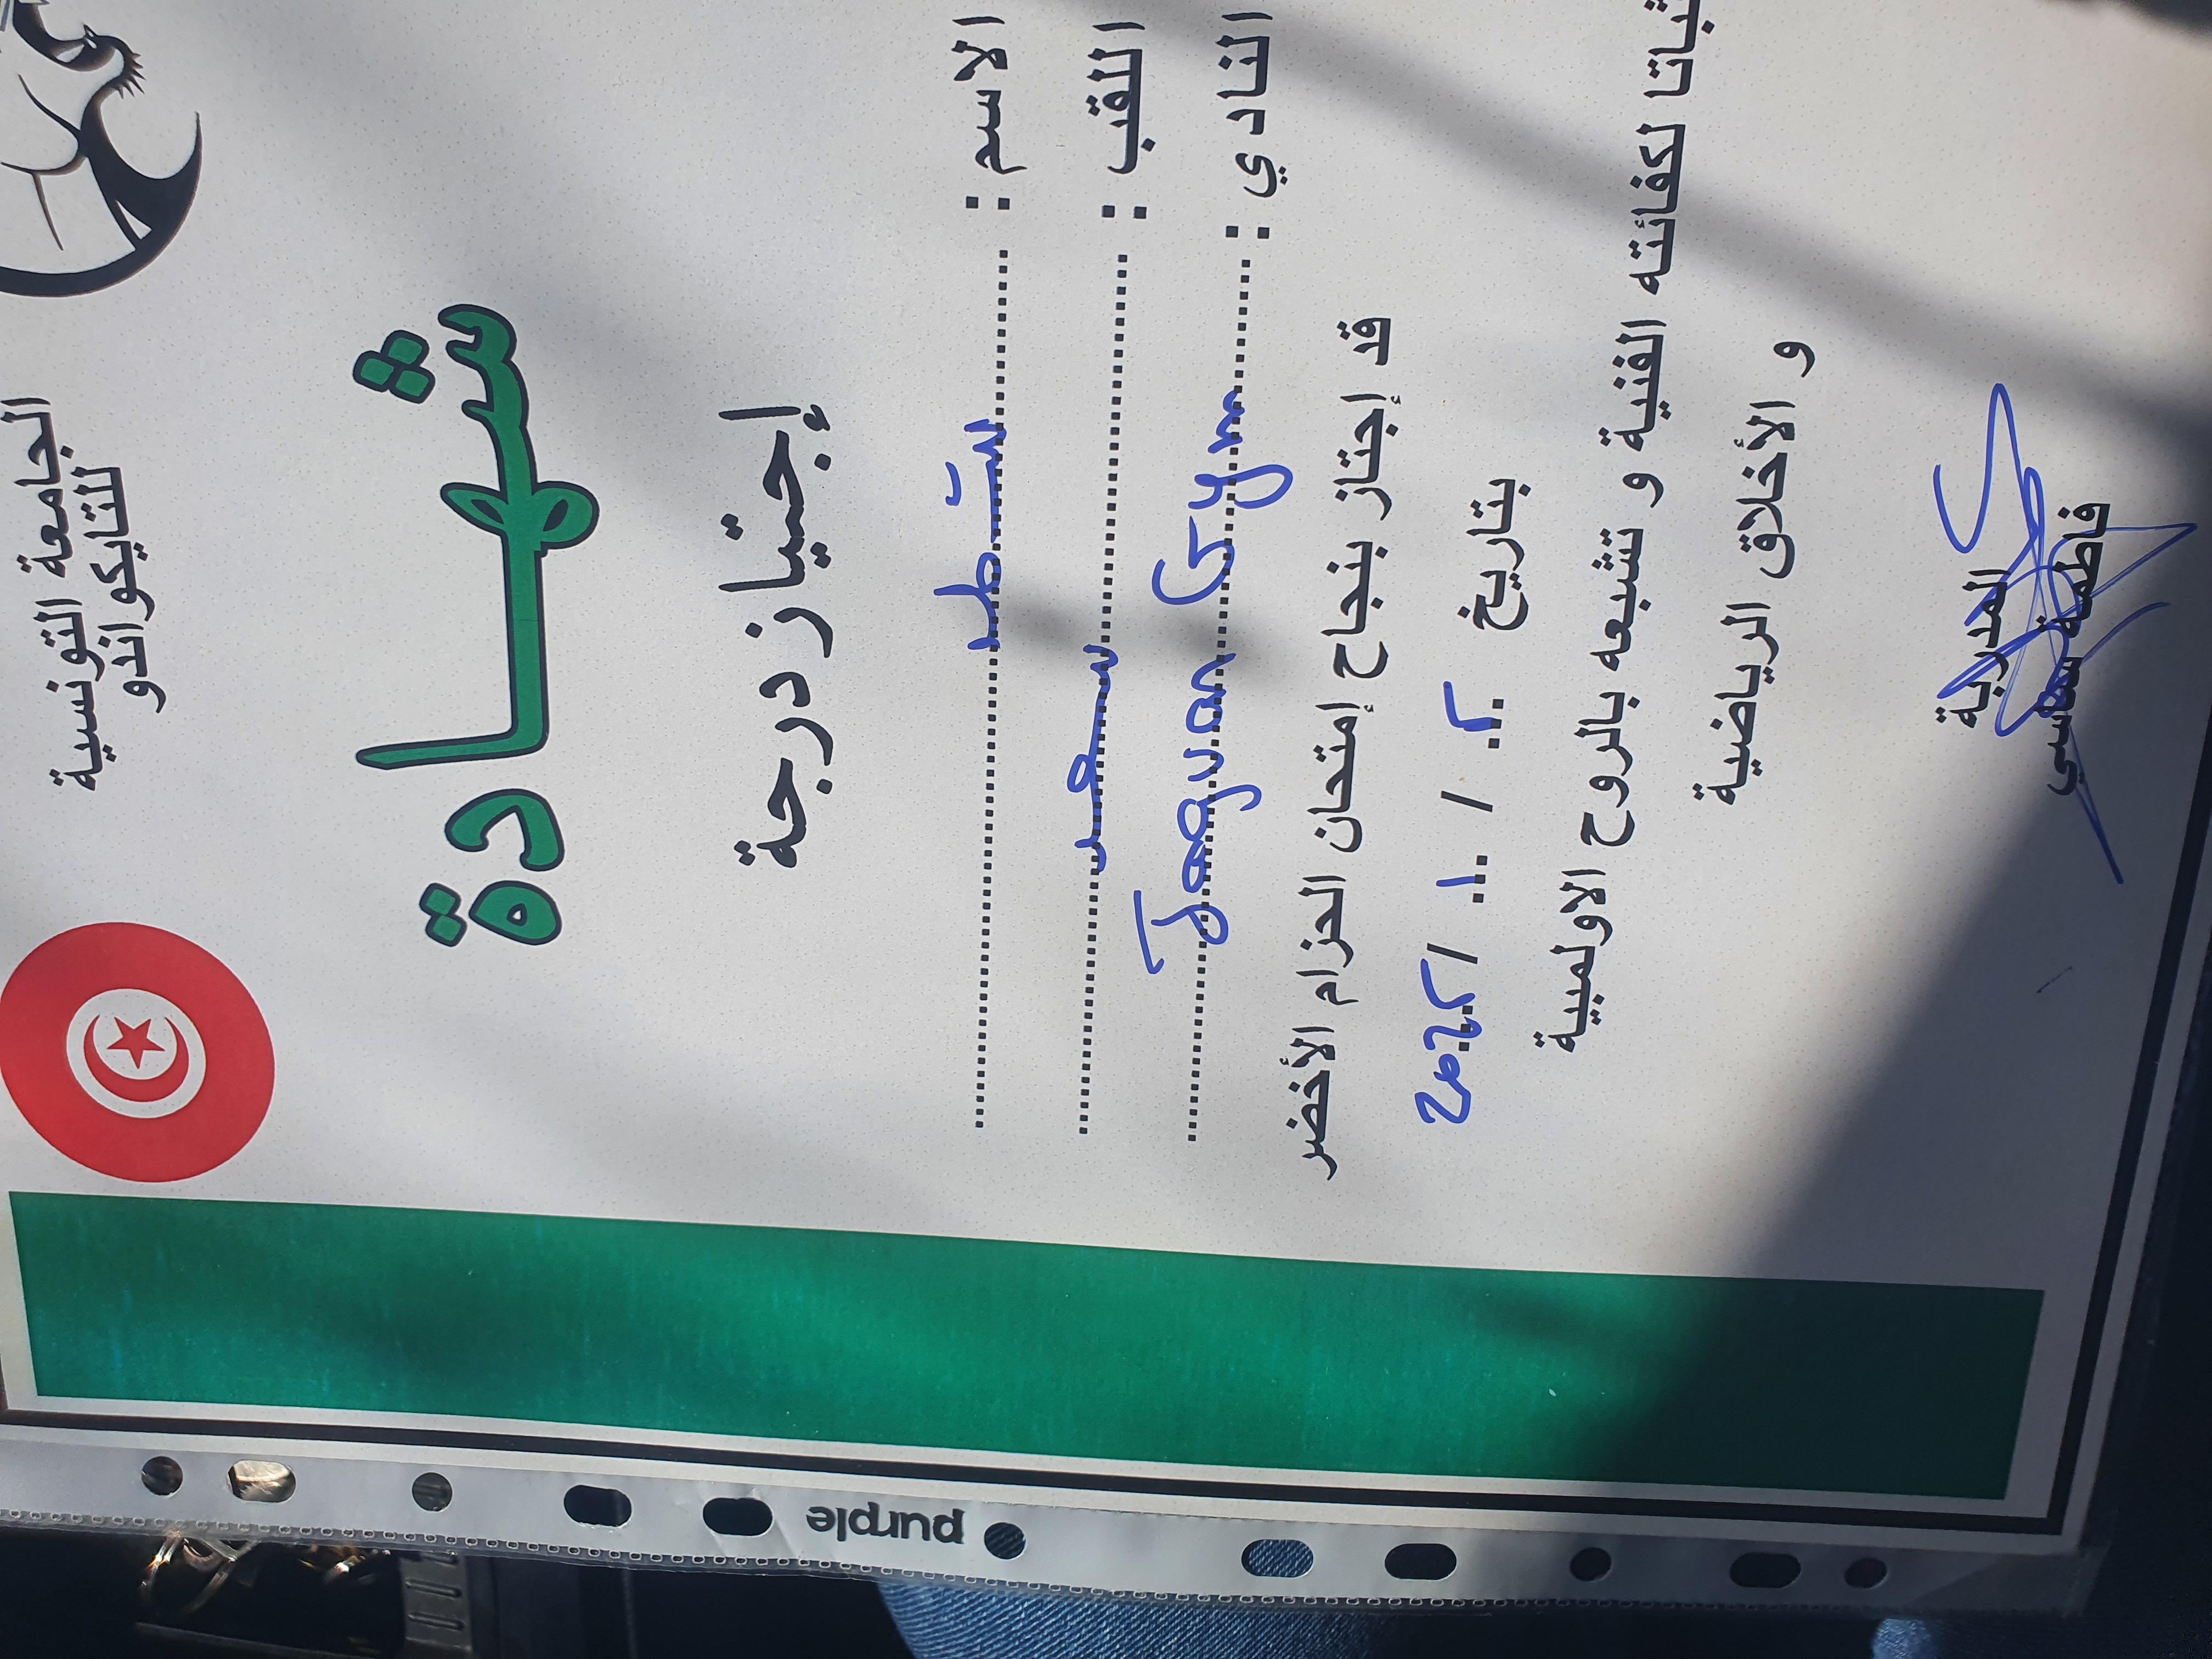 الجامعة التونسية
للتايكواندو
شهادة
إجتياز درجة
الاسم :
اللقب : سعد
النادي : Jaguar Gym
قد إجتاز بنجاح إمتحان الحزام الأخضر
بتاريخ / 1 / 2025
ثباتا لكفائته الفنية و تشبعه بالروح الاولمبية
و الأخلاق الرياضية
المدربة
فاطمة ساسي
purple